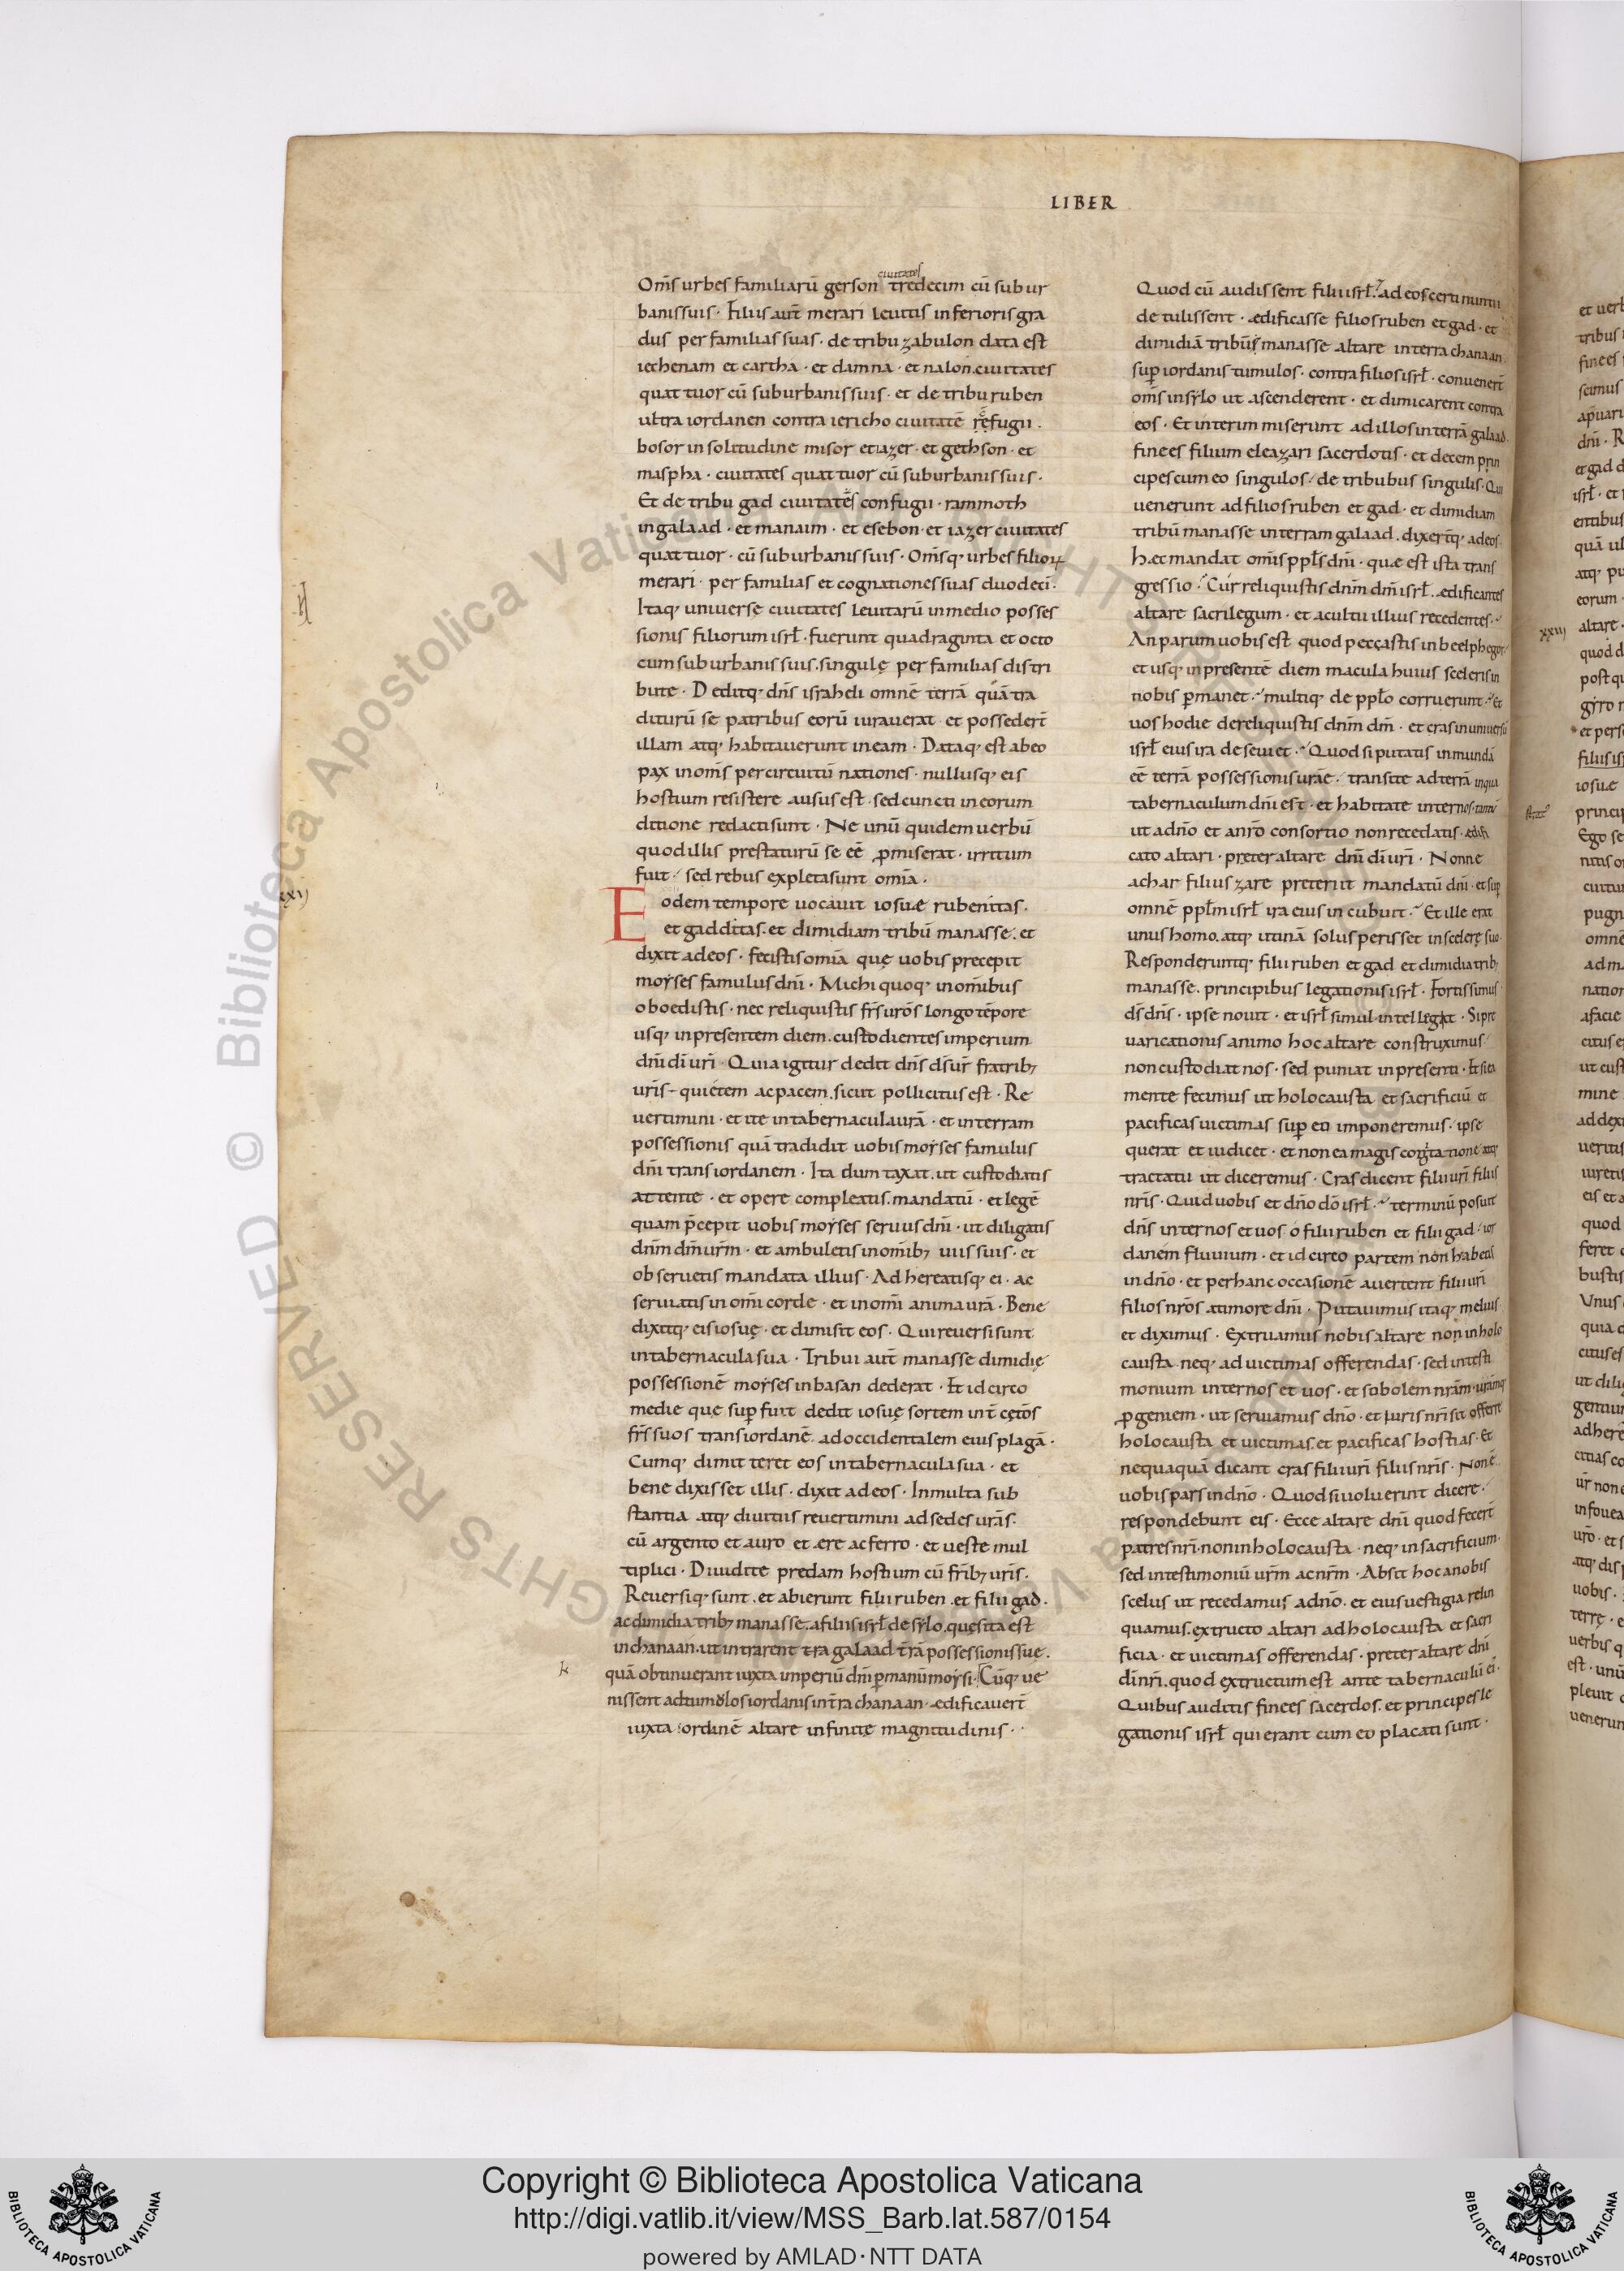 LIBER
ciuitates
Om̄s urbes familiarū gerson tredecim cū subur
banis suis · Filiis aut̄ merari leuitis inferioris gra
dus per familias suas · de tribu zabulon data est
iechenam et cartha · et damna · et nalon. ciuitates
quattuor cū suburbanis suis · et de tribu ruben
ultra iordanen contra iericho ciuitatē refugii ·
bosor in solitudine misor et iazer · et gethson · et
maspha · ciuitates quattuor cū suburbanis suis ·
Et de tribu gad ciuitates confugii · rammoth
in galaad · et manaim · et esebon · et iazer ciuitates
quattuor · cū suburbanis suis · Om̄sq; urbes filioꝝ
merari · per familias et cognationes suas duodeci ·
Itaq; uniuerse ciuitates leuitarū in medio posses
sionis filiorum isrł · fuerunt quadraginta et octo
cum suburbanis suis. singulę per familias distri
bute · Deditq; dn̄s israheli omnē terrā quā tra
diturū se patribus eorū iurauerat · et possedert̄
illam atq; habitauerunt in eam · Dataq; est ab eo
pax in om̄s per circuitū nationes · nullusq; eis
hostium resistere ausus est · sed cuncti in eorum
ditione redacti sunt · Ne unū quidem uerbū
quod illis prestaturū se eē ꝓmiserat · irritum
fuit · sed rebus expleta sunt om̄ia ·
xxi
Eodem tempore uocauit iosuæ rubenitas ·
et gadditas. et dimidiam tribū manasse. et
dixit ad eos · fecistis om̄ia quę uobis precepit
moyses famulus dn̄i · Michi quoq; in om̄ibus
oboedistis · nec reliquistis fr̄s ur̄os longo tēpore
usq; in presentem diem. custodientes imperium
dn̄i dī uri · Quia igitur dedit dn̄s d̄s ur̄ fratrib;
uris · quietem ac pacem. sicut pollicitus est · Re
uertimini · et ite in tabernacula urā · et in terram
possessionis quā tradidit uobis moyses famulus
dn̄i trans iordanem · Ita dum taxat. ut custodiatis
attente · et opere compleatis. mandatū · et legē
quam p̄cepit uobis moyses seruus dn̄i · ut diligatis
dn̄m dm̄ urm̄ · et ambuletis in om̄ib; uiis suis · et
obseruetis mandata illius · Adhereatisq; ei · ac
seruiatis in om̄i corde · et in om̄i anima urā · Bene
dixitq; eis iosuę · et dimisit eos · Qui reuersi sunt
in tabernacula sua · Tribui aut̄ manasse dimidię
possessionē moyses in basan dederat · Et idcirco
medie que sup̱ fuit dedit iosuę sortem int̄ cęt̄os
fr̄s suos trans iordanē. ad occidentalem eius plagā ·
Cumq; dimitteret eos in tabernacula sua · et
bene dixisset illis · dixit ad eos · In multa sub
stantia atq; diuitiis reuertimini ad sedes urās ·
cū argento et auro et ære ac ferro · et ueste mul
tiplici · Diuidite predam hostium cū fr̄ib; uris ·
Reuersiq; sunt. et abierunt filii ruben. et filii gad ·
ac dimidia trib; manasse. a filiis isrł de sylo. quę sita est
in chanaan. ut intrarent t̄ra galaad t̄rā possessionis sue.
quā obtinuerant iuxta imperiū dn̄i ꝑ manū moysi · Cūq; ue
nissent ad tumulos iordanis in t̄ra chanaan · ædificauert̄
iuxta ordinē altare infinitę magnitudinis ·
Quod cū audissent filii isrł · ad eos certi nuntii
detulissent · ædificasse filios ruben et gad · et
dimidiā tribus manasse altare in terra chanaan
sup̱ iordanis tumulos · contra filios isrł · conuenert̄
om̄s in sylo ut ascenderent · et dimicarent contra
eos · Et interim miserunt ad illos in terrā galaad
finees filium eleazari sacerdotis · et decem prin
cipes cum eo singulos · de tribubus singulis. Qui
uenerunt ad filios ruben et gad · et dimidiam
tribū manasse in terram galaad. dixert̄q; ad eos.
Hæc mandat om̄is ppłs dn̄i · quæ est ista trans
gressio · Cur reliquistis dn̄m dm̄ isrł. ædificantes
altare sacrilegum · et a cultu illius recedentes ·
An parum uobis est quod peccastis in beelphegor
et usq; in presentē diem macula huius sceleris in
nobis ꝑmanet · multiq; de ppło corruerunt · et
uos hodie dereliquistis dn̄m dm̄ · et cras in uniuersū
isrł eius ira deseuiet · Quod si putatis inmundā
eē terrā possessionis uræ · transite ad terrā in qua
tabernaculum dn̄i est · et habitate inter nos · tantū
ut a dn̄o et a nr̄o consortio non recedatis · ædifi
cato altari · preter altare dn̄i dī uri · Nonne
achar filius zare preteriit mandatū dn̄i · et sup̱
omnē ppłm isrł ira eius incubuit · Et ille erat
unus homo. atq; utinā solus perisset in scelere suo.
Responderuntq; filii ruben et gad et dimidia trib;
manasse. principibus legationis isrł · Fortissimus
d̄s dn̄s · ipse nouit · et isrł simul intelleget · Si pre
uaricationis animo hoc altare construximus
non custodiat nos · sed puniat in presenti · Et si ea
mente fecimus ut holocausta et sacrificiū et
pacificas uictimas sup̱ eo imponeremus · ipse
querat et iudicet · et non ea magis cogitatione atq;
tractatu ut diceremus · Cras dicent filii uri filiis
nris · Quid uobis et dn̄o dō isrł · terminū posuit
dn̄s inter nos et uos · o filii ruben et filii gad · ior
danem fluuium · et idcirco partem non habetis
in dn̄o · et per hanc occasionē auertent filii uri
filios nr̄os a timore dn̄i · Putauimus itaq; melius
et diximus · Extruamus nobis altare non in holo
causta. neq; ad uictimas offerendas · sed in testi
monium inter nos et uos · et sobolem nrām · urāmq;
ꝓgeniem · ut seruiamus dn̄o · et iuris nri sit offerre
holocausta et uictimas. et pacificas hostias. Et
nequaquā dicant cras filii uri filiis nris · Non ē
uobis pars in dn̄o · Quod si uoluerint dicere ·
respondebunt eis · Ecce altare dn̄i quod fecert̄
patres nri. non in holocausta · neq; in sacrificium ·
sed in testimoniū urm̄ ac nrm̄ · Absit hoc a nobis
scelus ut recedamus a dn̄o. et eius uestigia relin
quamus. extructo altari ad holocausta et sacri
ficia · et uictimas offerendas · preter altare dn̄i
dī nri. quod extructum est ante tabernaculū ei ·
Quibus auditis finees sacerdos. et principes le
gationis isrł qui erant cum eo placati sunt ·
xxiii
Copyright © Biblioteca Apostolica Vaticana
http://digi.vatlib.it/view/MSS_Barb.lat.587/0154
powered by AMLAD·NTT DATA
BIBLIOTECA APOSTOLICA VATICANA
BIBLIOTECA APOSTOLICA VATICANA